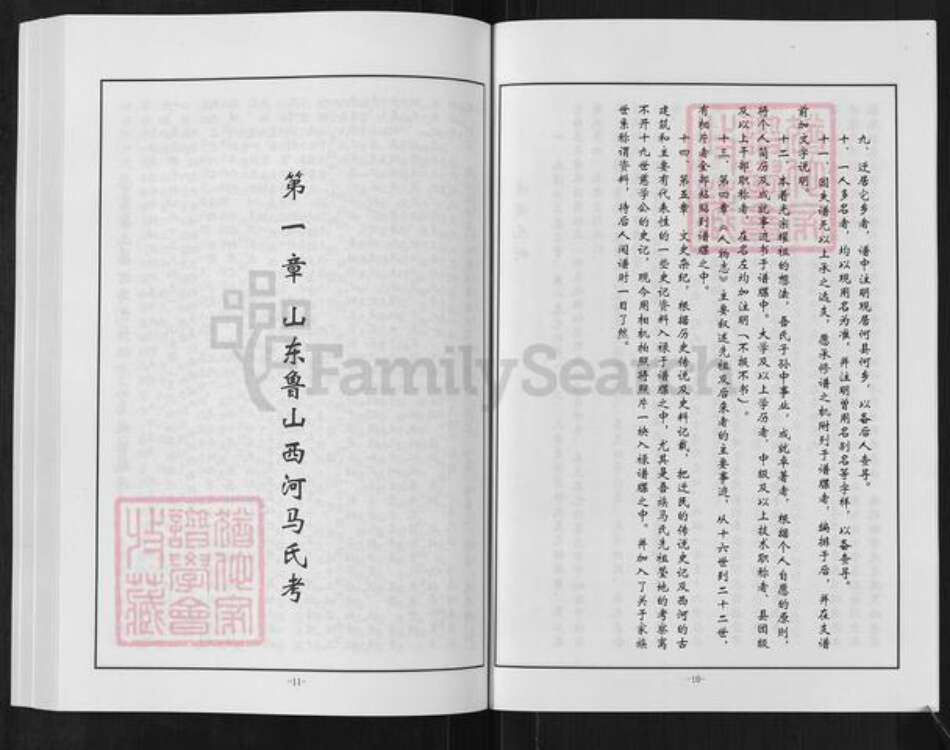 九、迁居它乡者，谱中注明现居何县何乡，以备后人查寻。
十、一人多名者，均以现用名为准，并注明曾用名别名等字样，以备查寻。
十一、因失谱无以上承之远支，愿承修谱之机附到于谱牒者，编排于后，并在支谱
前加文字说明。
十二、本着光宗耀祖的想法，吾氏子孙中事业、成就卓著者，根据个人自愿的原则，
将个人简历及成就事迹书于谱牒中。大学及以上学历者，中级及以上技术职称者，县团级
及以上干部职称者，在名左均加注明（不报不书）。
十三、第四章《人物志》主要叙述先祖及后来者的主要事迹，从十六世到二十二世，
有相片者全部粘贴到谱牒之中。
十四、第五章，文史杂纪，根据历史传说及史料记载，把迁民的传说史记及西河的古
建筑和主要有代表性的一些史记资料入禄于谱牒之中，尤其是吾族马氏先祖茔地的考察离
不开十九世慈学公的史记，现今用相机拍照将照片一块入禄谱牒之中。并加入了关于家族
世系称谓资料，待后人阅谱时一目了然。
-10-
第一章 山东鲁山西河马氏考
-11-
FamilySearch